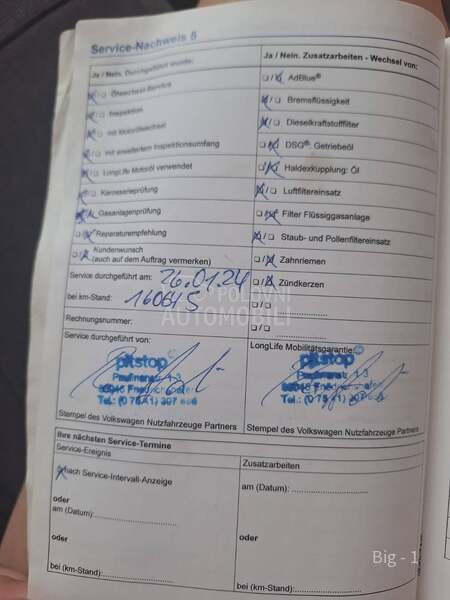 Service-Nachweis 8
Ja / Nein. Durchgeführt wurde:
Ölwechsel-Service
Inspektion
mit Motorölwechsel
mit erweitertem Inspektionsumfang
LongLife Motoröl verwendet
Karosserieprüfung
Gasanlagenprüfung
Reparaturempfehlung
Kundenwunsch
(auch auf dem Auftrag vermerken)
Service durchgeführt am: 26.01.24
bei km-Stand: 160645
Rechnungsnummer:
Service durchgeführt von:
pitstop
Paulinenstr. 1-3
Tel.: (0 75 41) 397
Stempel des Volkswagen Nutzfahrzeuge Partners
Ja / Nein. Zusatzarbeiten - Wechsel von:
AdBlue®
Bremsflüssigkeit
Dieselkraftstofffilter
DSG®. Getriebeöl
Haldexkupplung: Öl
Luftfiltereinsatz
Filter Flüssiggasanlage
Staub- und Pollenfiltereinsatz
Zahnriemen
Zündkerzen
LongLife Mobilitätsgarantie:
pitstop
Tel.: (0 75 41) 397
Stempel des Volkswagen Nutzfahrzeuge Partners
POLOVNI
AUTOMOBILI
Ihre nächsten Service-Termine
Service-Ereignis
nach Service-Intervall-Anzeige
oder
am (Datum):
oder
bei (km-Stand):
Zusatzarbeiten
am (Datum):
oder
bei (km-Stand):
Big - 1